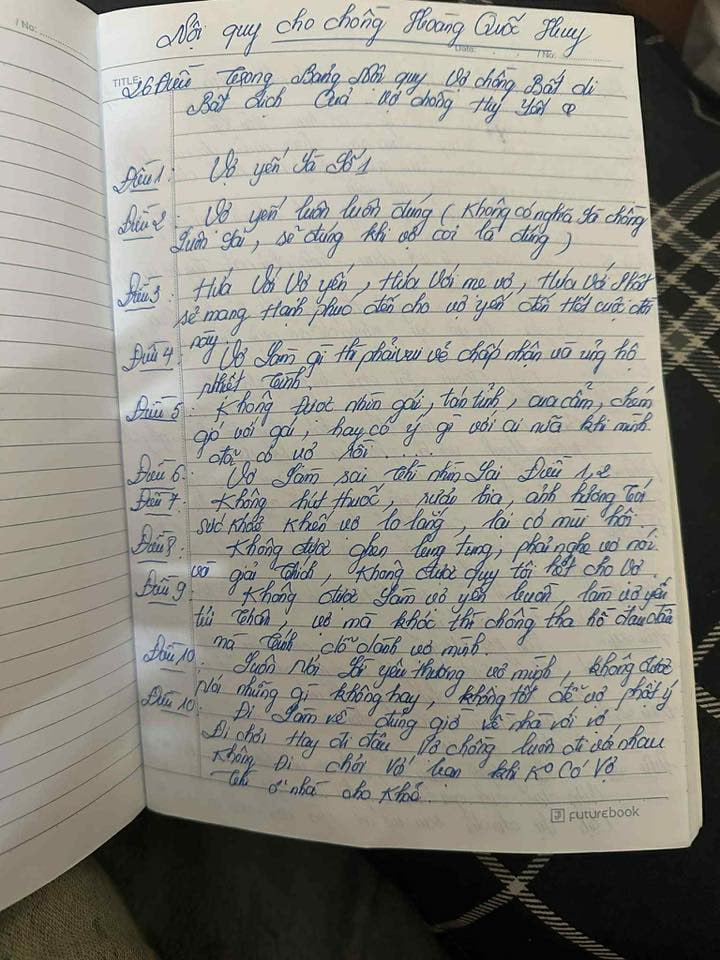 / No:
Nội quy cho chồng Hoàng Quốc Huy
Date: / No:
TITLE 26 Điều Trong Bảng Nội quy Vợ chồng Bất di
Bất dịch Của vợ chồng Huy Yến
Điều 1: Vợ yến Là Số 1
Điều 2: Vợ yến luôn luôn đúng (Không có nghĩa là chồng
luôn sai, sẽ đúng khi vợ coi là đúng)
Điều 3: Hứa Với Vợ yến, Hứa Với mẹ vợ, Hứa Với Phật
sẽ mang Hạnh phúc đến cho vợ yến đến Hết cuộc đời
này.
Điều 4: Vợ Làm gì thì phải vui vẻ chấp nhận và ủng hộ
nhiệt tình.
Điều 5: Không Được nhìn gái, tán tỉnh, cưa cẩm, chém
gió với gái, hay có ý gì với ai nữa khi mình
đã có vợ rồi.....
Điều 6: Vợ Làm sai thì nhìn Lại Điều 1, 2
Điều 7: Không hút thuốc, rượu bia, ảnh hưởng tới
sức khoẻ khiến vợ lo lắng, lại có mùi hôi.
Điều 8: Không được ghen lung tung, phải nghe vợ nói
và giải thích, không được quy tội hết cho vợ.
Điều 9: Không được Làm vợ yến buồn, làm vợ yến
tủi thân, vợ mà khóc thì chồng tha hồ đau đầu
mà tính dỗ dành vợ mình.
Điều 10: Luôn nói Lời yêu thương vợ mình, không được
nói những gì không hay, không tốt để vợ phật ý
Điều 10: Đi Làm về đúng giờ về nhà với vợ,
Đi chơi Hay đi đâu Vợ chồng luôn đi với nhau
Không Đi chơi Với bạn khi Ko Có Vợ
Thì ở nhà cho Khoẻ.
FUTUREBOOK